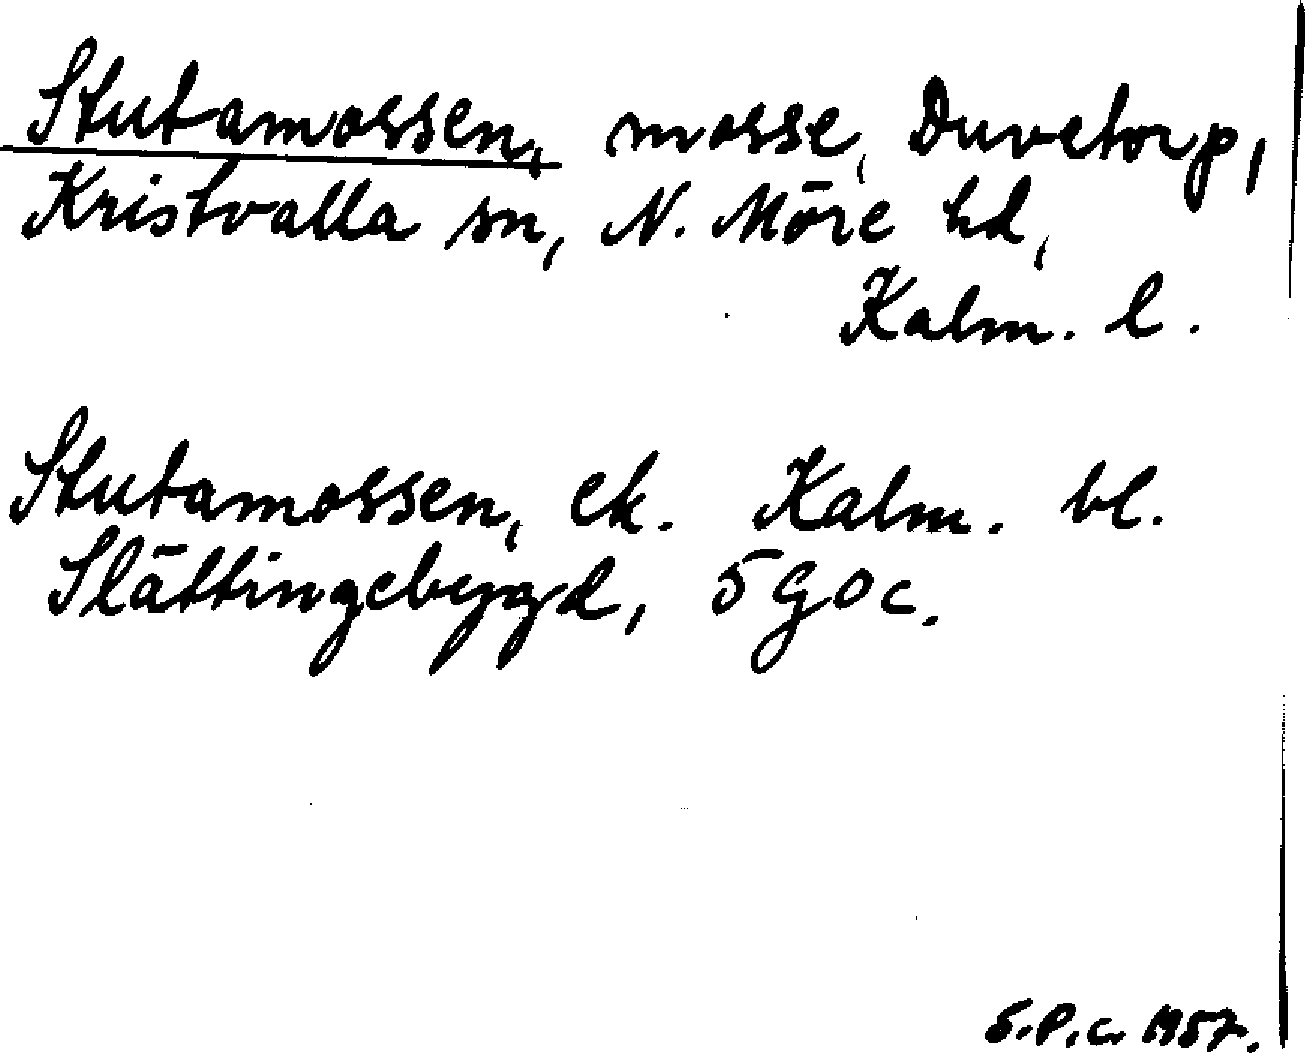 Stutamossen, mosse, Duvetorp,
Kristvalla sn, N. Möre hd,
Kalm. l.
Stutamossen, ek. Kalm. bl.
Slättingebygd, 5 G o c.
S.P.c. 1957.